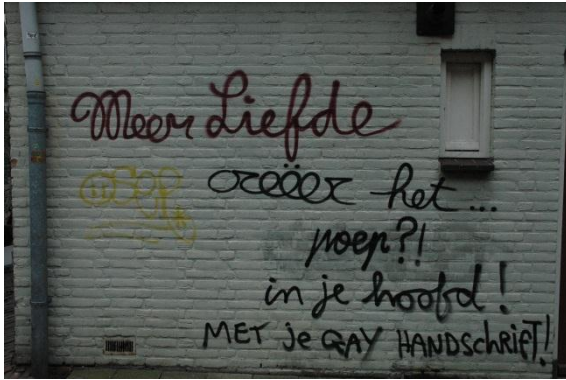 Meer Liefde
creëer het...
poep?!
in je hoofd!
MET je GAY HANDSCHRIFT!